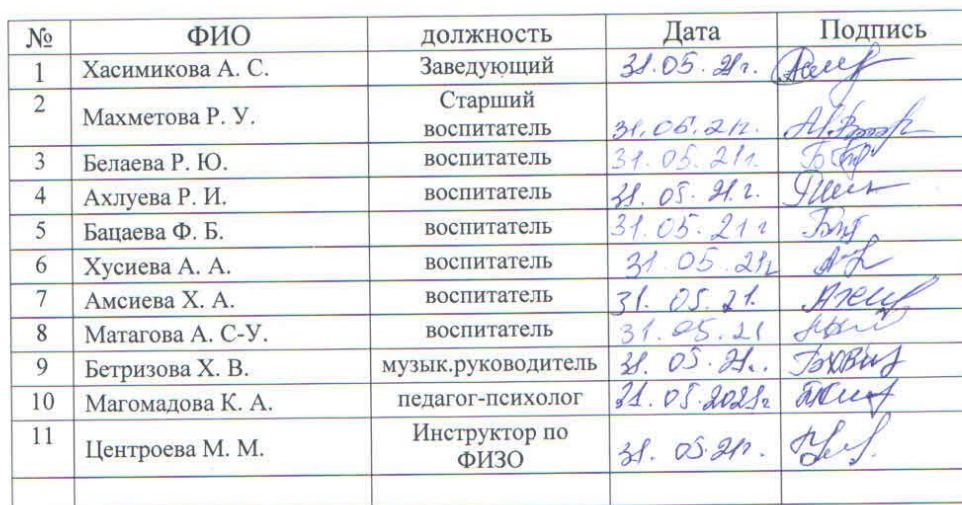 № ФИО должность Дата Подпись
1 Хасимикова А. С. Заведующий 31.05.21г.
2 Махметова Р. У. Старший воспитатель 31.05.21г.
3 Белаева Р. Ю. воспитатель 31.05.21г.
4 Ахлуева Р. И. воспитатель 31.05.21г.
5 Бацаева Ф. Б. воспитатель 31.05.21г
6 Хусиева А. А. воспитатель 31.05.21г
7 Амсиева Х. А. воспитатель 31.05.21.
8 Матагова А. С-У. воспитатель 31.05.21
9 Бетризова Х. В. музык.руководитель 31.05.21г.
10 Магомадова К. А. педагог-психолог 31.05.2021г
11 Центроева М. М. Инструктор по ФИЗО 31.05.21г.